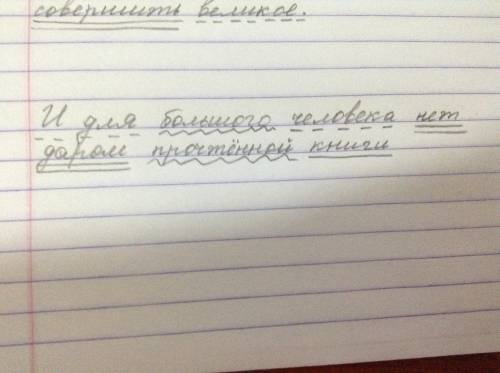 совершить великое.
И для большого человека нет
даром прочтённой книги